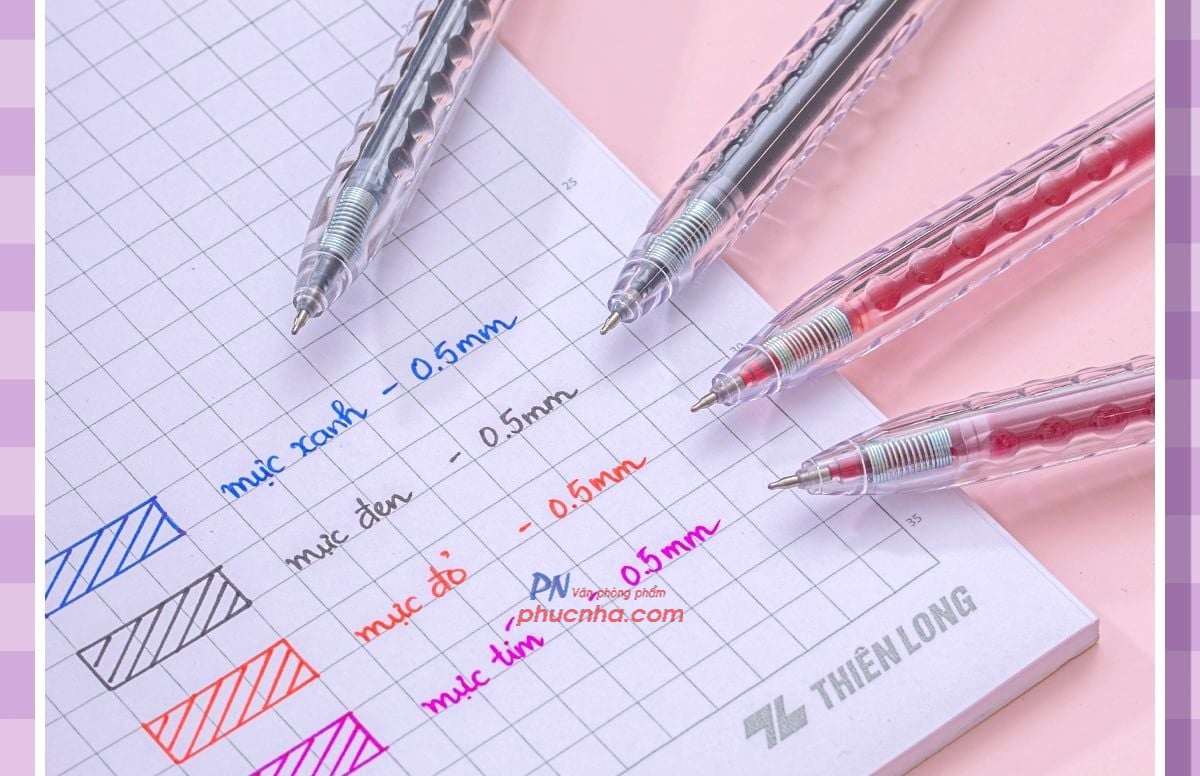 25
30
mực xanh - 0.5mm
mực đen - 0.5mm
mực đỏ - 0.5mm
mực tím - 0.5mm
PN Văn phòng phẩm
phucnha.com
35
THIÊN LONG